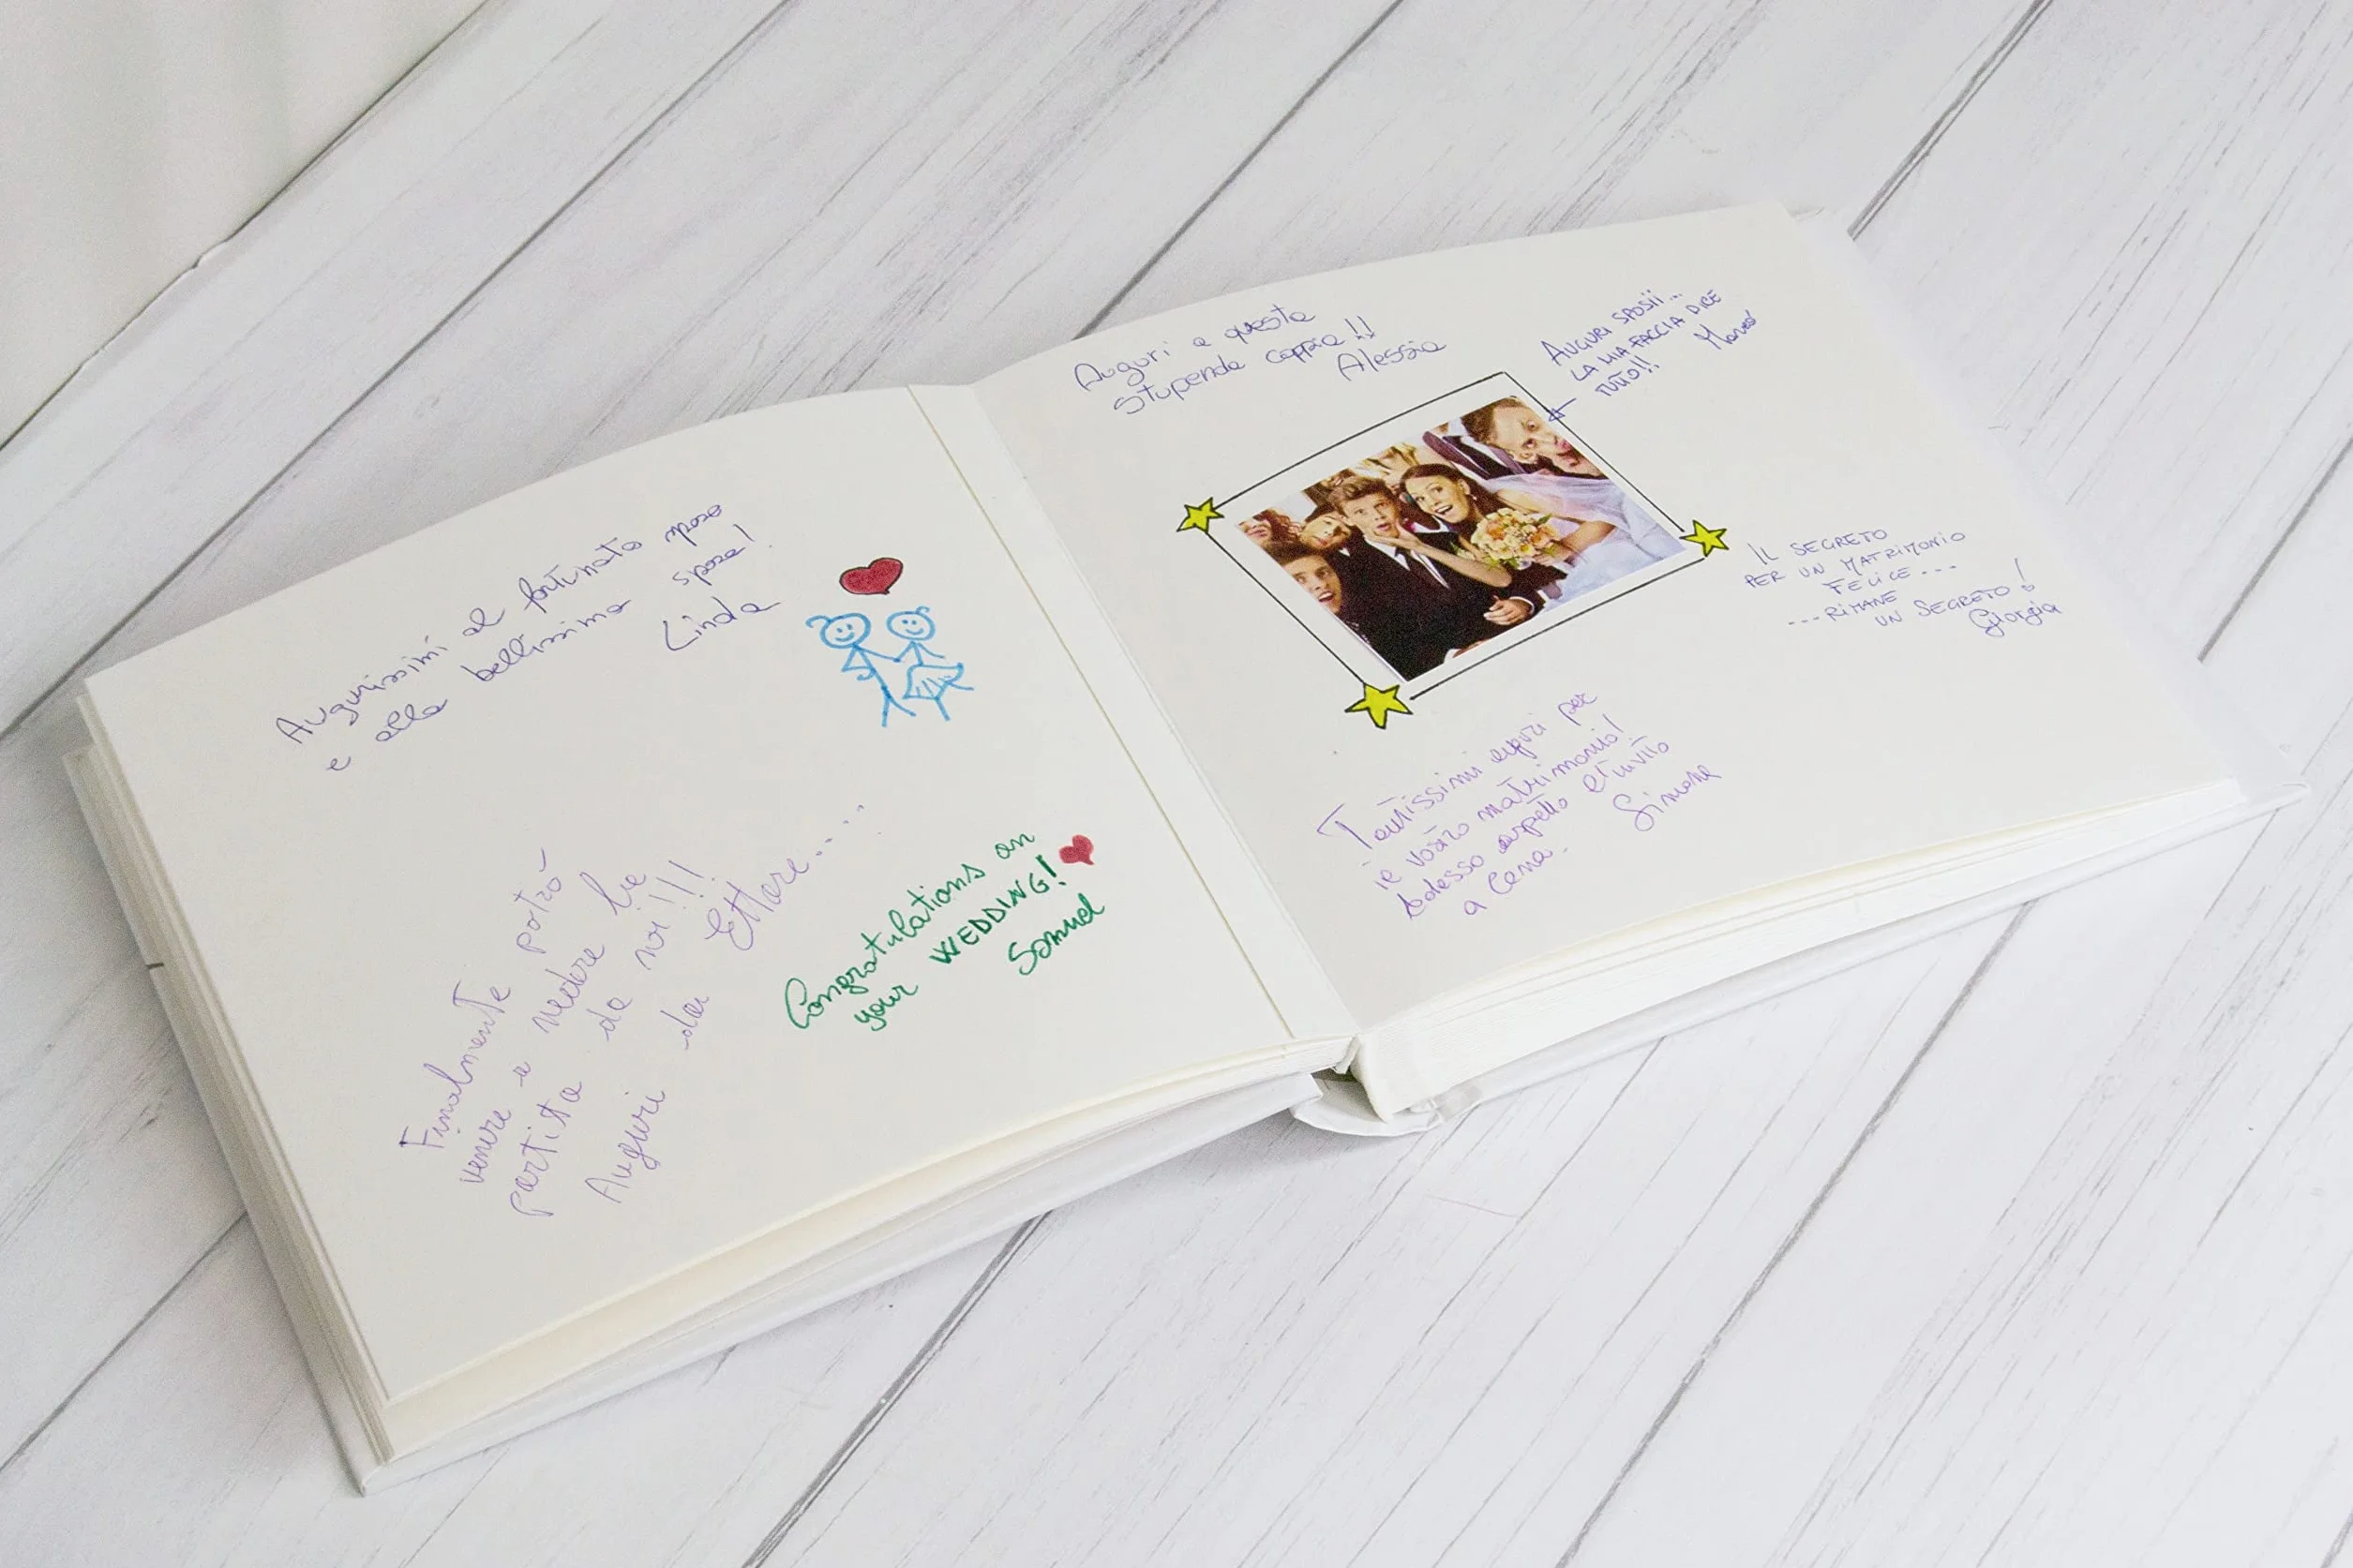 Augurissimi al fortunato sposo
e alla bellissima sposa!
Linda
Finalmente potrò
venire a vedere la
partita da voi!!!
Auguri da Ettore.....
Congratulations on
your WEDDING!
Samuel
Auguri a questa
stupenda coppia!!
Alessia
AUGURI SPOSII...
LA MIA FACCIA DICE
TUTTO!!
IL SEGRETO
PER UN MATRIMONIO
FELICE...
...RIMANE
UN SEGRETO!
Giorgia
Tantissimi auguri per
il vostro matrimonio!
Adesso aspetto l'invito
a cena.
Simone